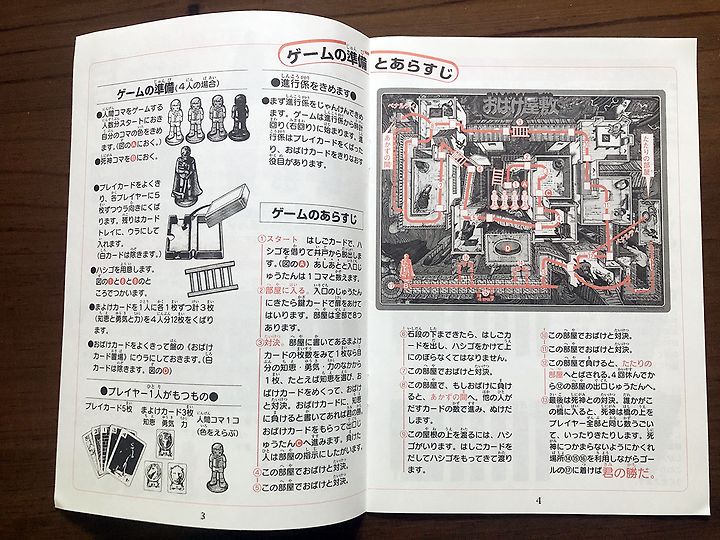 ゲームの準備とあらすじ
ゲームの準備(4人の場合)
●人間コマをゲームする
人数分スタートにおき
自分のコマの色をきめ
ます。(図のAにおく。)
●死神コマをBにおく。
●プレイカードをよくき
り、各プレイヤーに5
枚ずつウラ向きにくば
ります。残りはカード
トレイに、ウラにして
入れます。
(白カードは除きます。)
●ハシゴを用意します。
ところでつかいます。
●まよけカードを1人に各1枚ずつ計3枚
(知恵と勇気と力)を4人分12枚をくばり
ます。
●おばけカードをよくきって盤の(おばけ
カード置場)にウラにしておきます。(白
カードは除きます。図のD)
●プレイヤー1人がもつもの●
プレイカード5枚 まよけカード3枚
知恵 勇気 力
人間コマ1コ
(色をえらぶ)
3
●進行係をきめます●
●まず進行係をじゃんけんできめ
ます。ゲームは進行係から時計
回り(右回り)に始まります。進
行係はプレイカードをくばった
り、おばけカードをきりなおす
役目があります。
ゲームのあらすじ
①スタート はしごカードで、ハ
シゴを借りて井戸から脱出しま
す。(図のA) あしあとと入口じ
ゅうたんは1コマと数えます。
②部屋に入る。入口のじゅうたん
にきたら鍵カードで扉をあけて
はいります。部屋は全部で8つ
あります。
③対決。部屋に書いてあるまよけ
カードの枚数をみて1枚なら自
分の知恵・勇気・力のなかから
1枚、たとえば知恵を選び、お
ばけカードをめくって、おばけ
と対決。おばけカードに、知恵
に負けると書いてあれば君の勝。
おばけカードをもらって出口じ
ゅうたんCへ進みます。負けた
人は部屋の指示にしたがいます。
④この部屋でおばけと対決。
⑤この部屋でおばけと対決。
おばけ屋敷
あかずの間
たたりの部屋
⑥石段の下まできたら、はしごカ
ードを出し、ハシゴをかけて上
にのぼらなくてはなりません。
⑦この部屋でおばけと対決。
⑧この部屋で、もしおばけに負け
ると、あかずの間へ。他の人が
だすカードの数で進み、ぬけだ
します。
⑨この屋根の上を渡るには、ハシ
ゴがいります。はしごカードを
だしてハシゴをもってきて渡り
ます。
⑩この部屋でおばけと対決。
⑪この部屋でおばけと対決。
⑫この部屋で負けると、たたりの
部屋へとばされる。4回休んでか
ら⑫の部屋の出口じゅうたんへ。
⑬最後は死神との対決。誰かがこ
の橋に入ると、死神は橋の上を
プレイヤー全部と同じ数ごうい
て、いったりきたりします。死
神につかまらないようにかくれ
場所⑭⑮⑯を利用しながらゴー
ルの⑰に着けば君の勝だ。
4